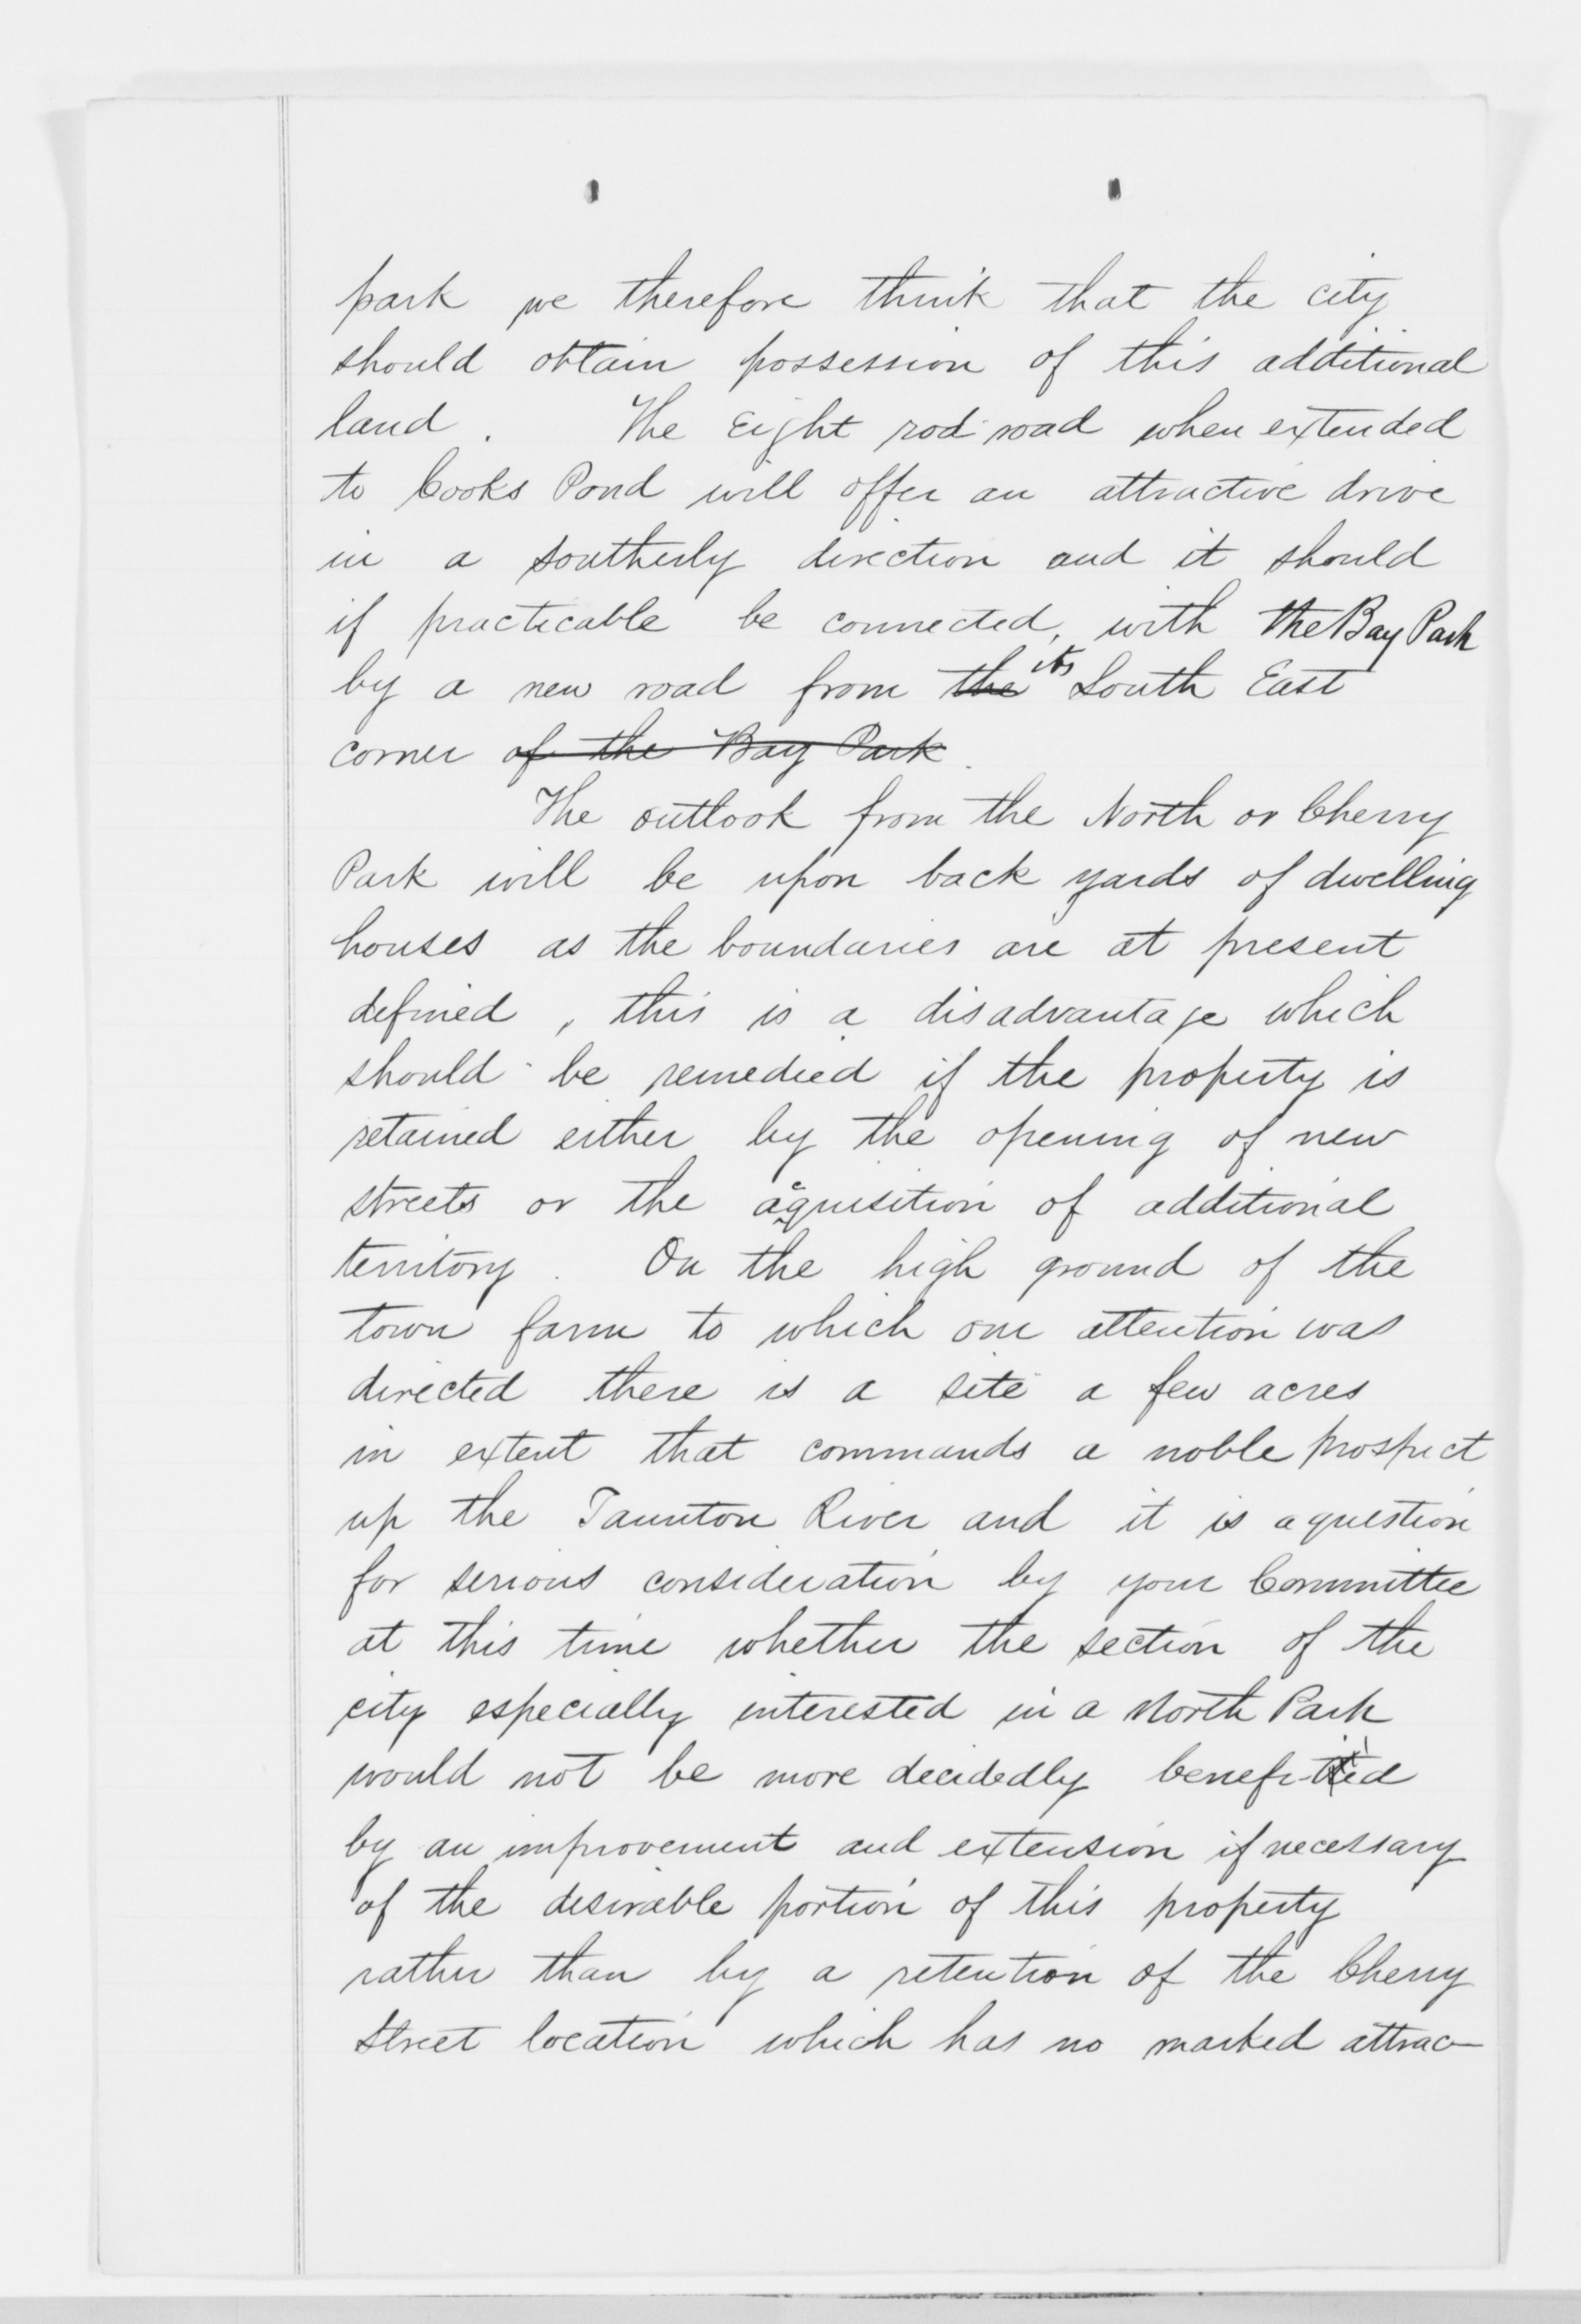 park we therefore think that the city
should obtain possession of this additional
land. The Eight rod road when extended
to Cooks Pond will offer an attractive drive
in a southerly direction and it should
if practicable be connected, with the Bay Park
by a new road from the its South East
corner of the Bay Park.
The outlook from the North or Cherry
Park will be upon back yards of dwelling
houses as the boundaries are at present
defined, this is a disadvantage which
should be remedied if the property is
retained either by the opening of new
streets or the acquisition of additional
territory. On the high ground of the
town farm to which our attention was
directed there is a site a few acres
in extent that commands a noble prospect
up the Taunton River and it is a question
for serious consideration by your Committee
at this time whether the section of the
city especially interested in a North Park
would not be more decidedly benefited
by an improvement and extension if necessary
of the desirable portion of this property
rather than by a retention of the Cherry
Street location which has no marked attrac-